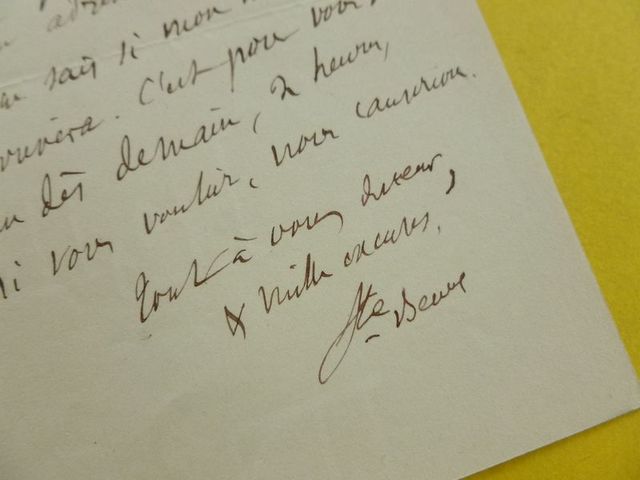 sait si mon
C'est pour vous,
dès demain, 2 heures,
si vous voulez, nous causerions.
tout à vous
& mille excuses,
Ste Beuve